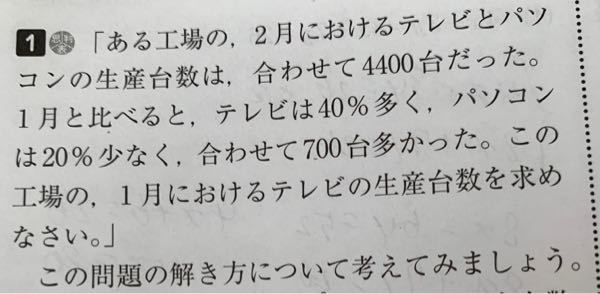 1 「ある工場の，2月におけるテレビとパソ
コンの生産台数は，合わせて4400台だった。
1月と比べると，テレビは40％多く，パソコン
は20％少なく，合わせて700台多かった。この
工場の，1月におけるテレビの生産台数を求め
なさい。」
この問題の解き方について考えてみましょう。